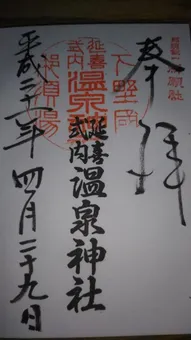 奉拝
下野国
延喜
式内
温泉神社
那須湯
延喜
式内
温泉神社
平成二十一年四月二十九日